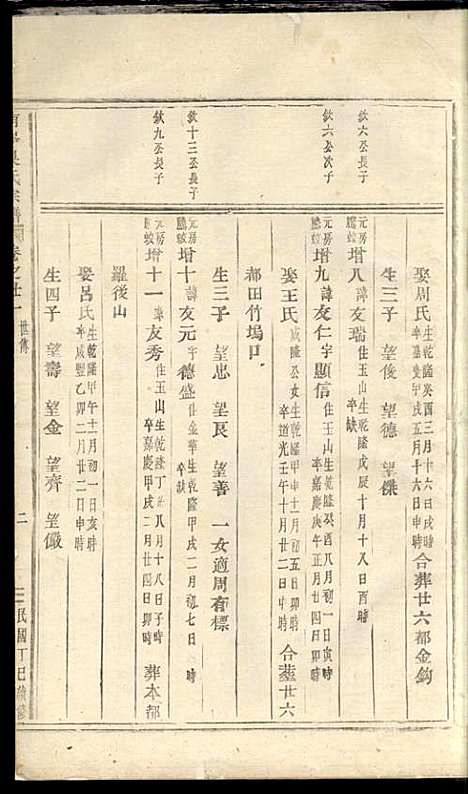 娶周氏 生乾隆癸酉三月十六日戌時 卒嘉慶癸酉五月十六日申時 合葬廿六都金鈎
生三子 望俊 望德 望傑
欽六公長子
元房 增八 諱友瑞 住玉山生乾隆戊辰十月十八日酉時 卒缺
欽六公次子
元房 增九 諱友仁字顯信 住玉山生乾隆癸酉八月初一日寅時 卒嘉慶庚午正月廿四日卯時
娶王氏 成隆公女生乾隆甲申十一月初五日卯時 卒道光壬午十一月廿二日申時 合葬廿六
都田竹塢口
生三子 望忠 望艮 望善 一女適周有標
欽十三公長子
元房 增十 諱友元字德盛 住金華生乾隆甲戌二月初七日 時 卒缺
欽九公長子
元房 增十一 諱友秀 住玉山生乾隆丁 八月十八日子時 卒嘉慶甲戌二月廿四日卯時 葬本都
羅後山
娶呂氏 生乾隆甲午十二月初一日亥時 卒咸豐乙卯二月廿二日申時
生四子 望壽 望金 望齊 望儼
吳氏宗譜 卷之廿一 世傳 二 民國丁巳續修